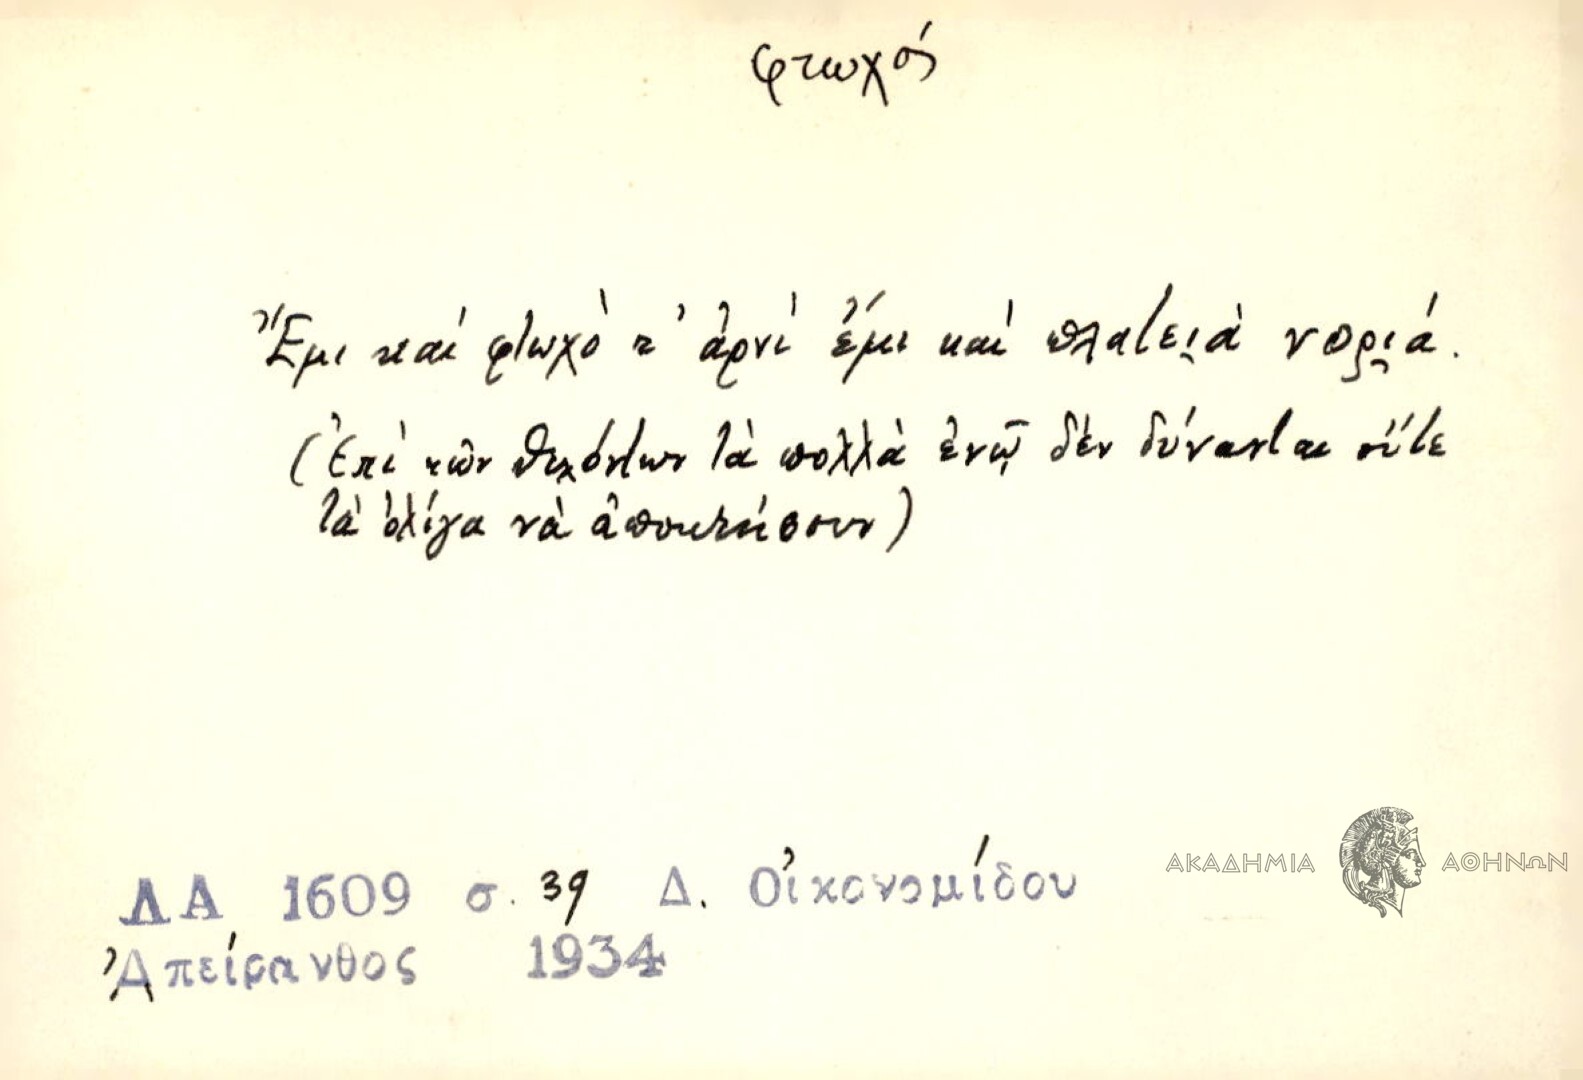 φτωχός
Ἔμι καί φτωχό τ' ἀρνί ἔμι καί πλατειὰ νοριά.
(Ἐπί τῶν θελόντων τὰ πολλὰ ἐνῷ δὲν δύνανται οὔτε
τὰ ὀλίγα νὰ ἀποκτήσουν)
ΛΑ 1609 σ. 39 Δ. Οἰκονομίδου
Ἀπείρανθος 1934
ΑΚΑΔΗΜΙΑ ΑΘΗΝΩΝ